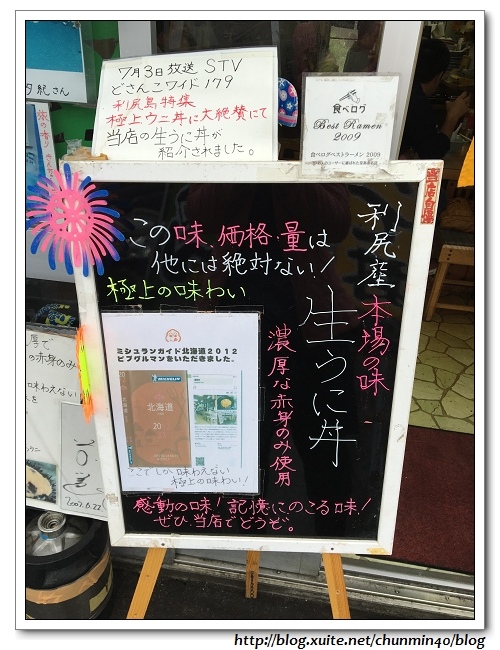 7月3日放送 STV
どさんこワイド179
利尻島特集
極上ウニ丼に大絶賛にて
当店の生うに丼が
紹介されました。
食べログ
Best Ramen
2009
食べログベストラーメン 2009
夕紀さん
この味、価格・量は
他には絶対ない!
極上の味わい
利尻産本場の味
生うに丼
濃厚な赤身のみ使用
ミシュランガイド北海道2012
ビブグルマンをいただきました。
MICHELIN
北海道
20
ここでしか味わえない
極上の味わい!
感動の味!記憶にのこる味!
ぜひ当店でどうぞ。
の赤身のみ
味わえない
2007.6.22
http://blog.xuite.net/chunmin40/blog